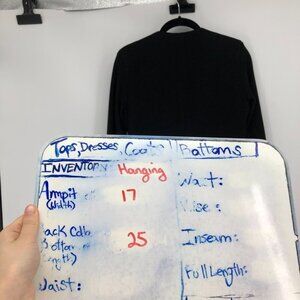 Tops, Dresses, Coats Bottoms
INVENTORY: Hanging
Armpit 17
(width)
Waist:
Rise:
Back 25
Bottom
Length)
Inseam:
Full Length:
Waist: